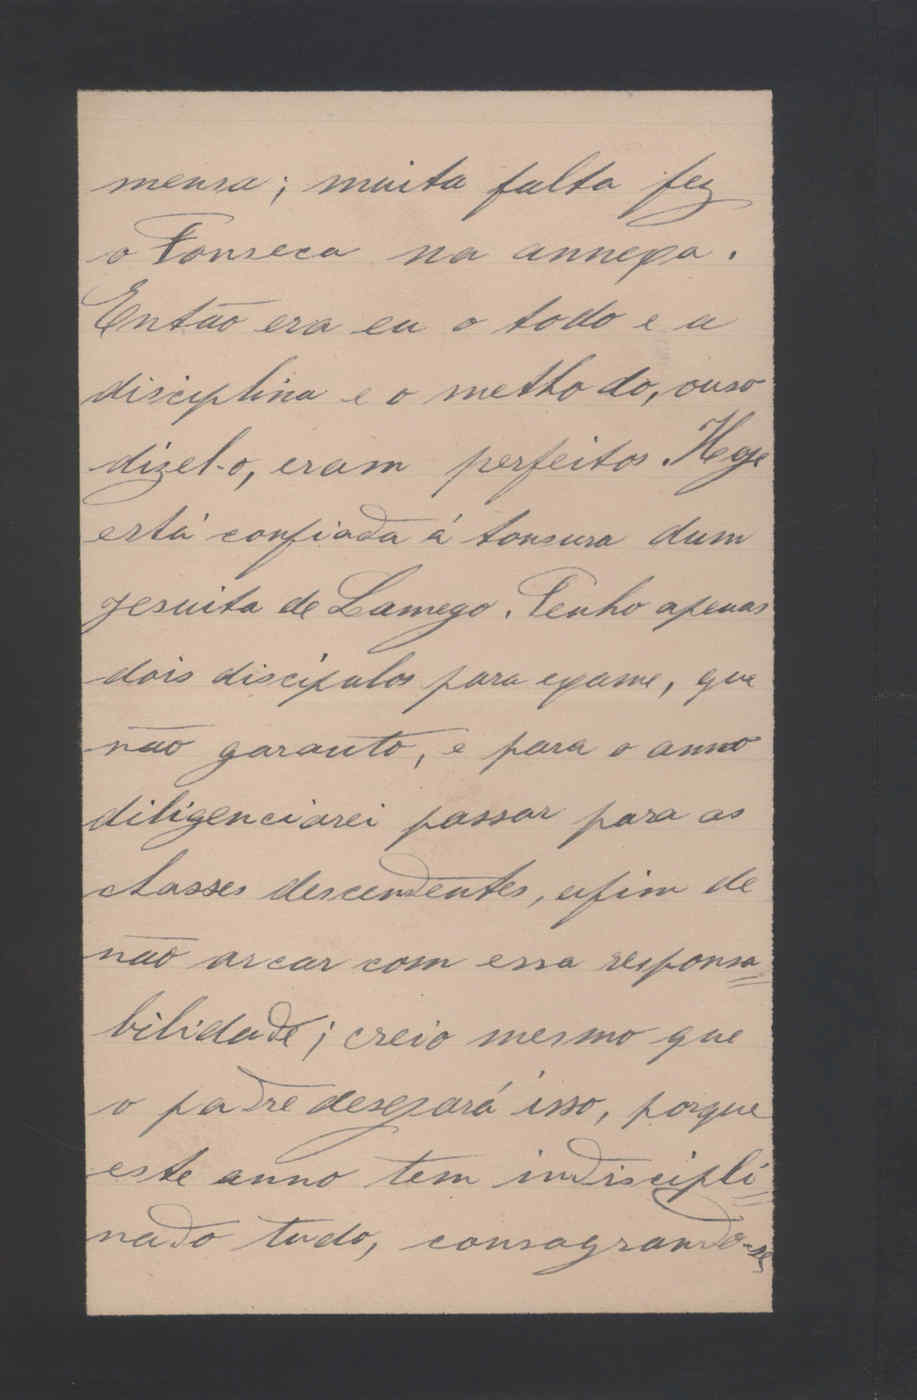 mensa; muita falta fez
o Fonseca na annexa.
Então era eu o todo e a
disciplina e o methodo, ouso
dizel-o, eram perfeitos. Hoje
está confiada á tonsura dum
jesuita de Lamego. Tenho apenas
dois discipulos para exame, que
não garanto, e para o anno
diligenciarei passar para as
classes descendentes, afim de
não arcar com essa responsa=
bilidade; creio mesmo que
o padre desejará isso, porque
este anno tem indiscipli=
nado tudo, consagrando-se